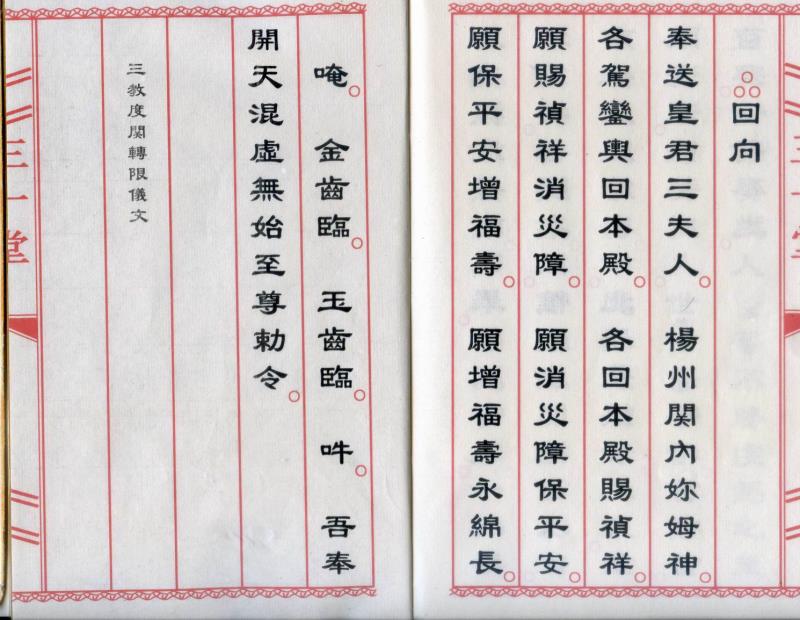 回向
奉送皇君三夫人。楊州関內妳姆神。
各駕鑾輿回本殿。各回本殿賜禎祥。
願賜禎祥消災障。願消災障保平安。
願保平安增福壽。願增福壽永綿長。
唵。金齒臨。玉齒臨。吽。吾奉
開天混虛無始至尊勅令。
三教度関轉限儀文
三一堂